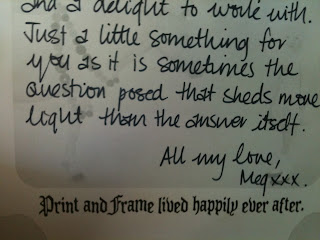 and a delight to work with.
Just a little something for
you as it is sometimes the
question posed that sheds more
light than the answer itself.
All my love,
Megxxx.
Print and Frame lived happily ever after.